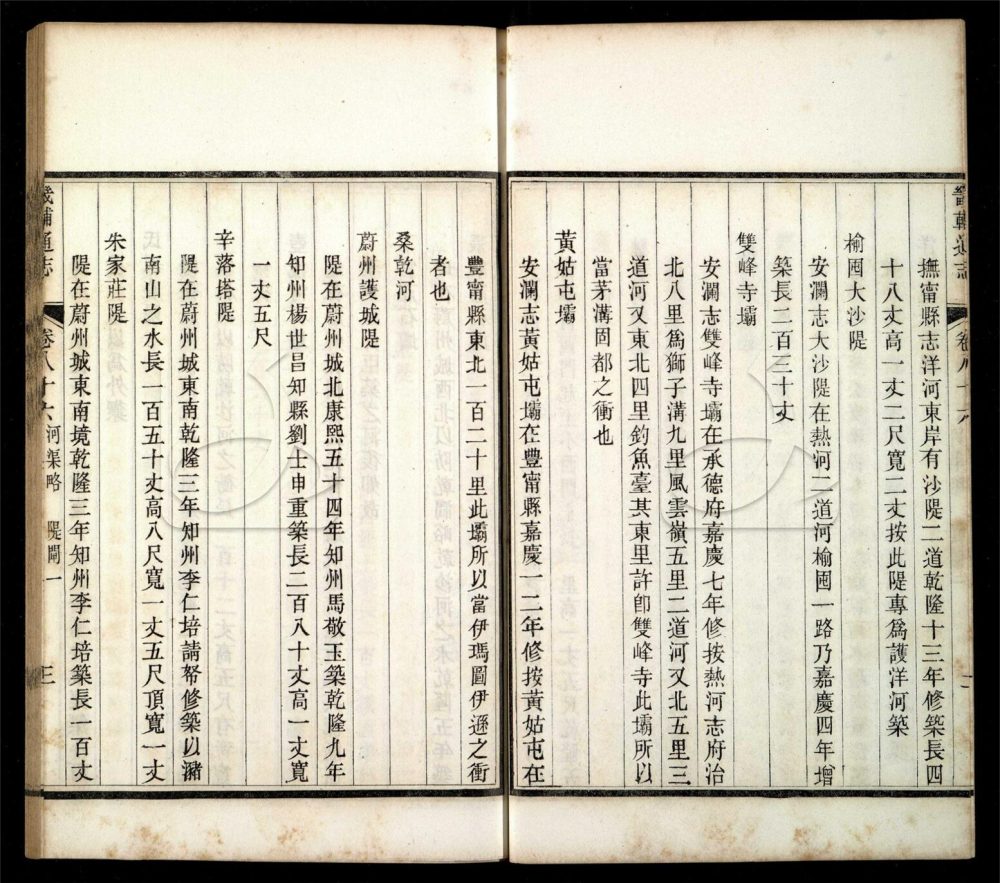 畿輔通志 卷八十六
撫甯縣志洋河東岸有沙隄二道乾隆十三年修築長四
十八丈高一丈二尺寬二丈按此隄專爲護洋河築
榆囤大沙隄
安瀾志大沙隄在熱河二道河榆囤一路乃嘉慶四年增
築長二百三十丈
雙峰寺壩
安瀾志雙峰寺壩在承德府嘉慶七年修按熱河志府治
北八里爲獅子溝九里風雲嶺五里二道河又北五里三
道河又東北四里釣魚臺其東里許卽雙峰寺此壩所以
當茅溝固都之衝也
黃姑屯壩
安瀾志黃姑屯壩在豐甯縣嘉慶一二年修按黃姑屯在
豐甯縣東北一百二十里此壩所以當伊瑪圖伊遜之衝
者也
桑乾河
蔚州護城隄
隄在蔚州城北康熙五十四年知州馬敬玉築乾隆九年
知州楊世昌知縣劉士申重築長二百八十丈高一丈寬
一丈五尺
辛落塔隄
隄在蔚州城東南乾隆三年知州李仁培請帑修築以瀦
南山之水長一百五十丈高八尺寬一丈五尺頂寬一丈
朱家莊隄
隄在蔚州城東南境乾隆三年知州李仁培築長一百丈
畿輔通志 卷八十六 河渠略 隄閘一 三